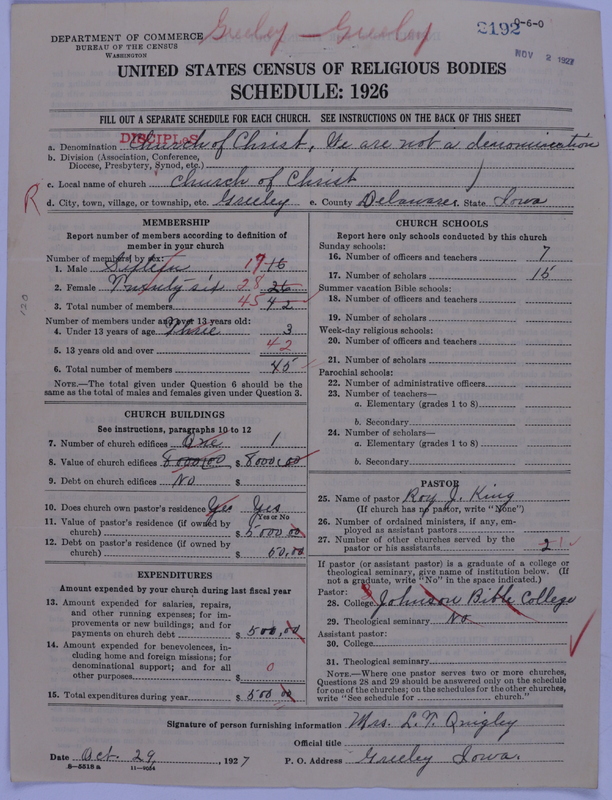 Greeley - Greeley
2192
9-6-0
NOV 2 1927
DEPARTMENT OF COMMERCE
BUREAU OF THE CENSUS
WASHINGTON
UNITED STATES CENSUS OF RELIGIOUS BODIES
SCHEDULE: 1926
FILL OUT A SEPARATE SCHEDULE FOR EACH CHURCH. SEE INSTRUCTIONS ON THE BACK OF THIS SHEET
DISCIPLES
a. Denomination Church of Christ, We are not a denomination
b. Division (Association, Conference, Diocese, Presbytery, Synod, etc.)
c. Local name of church Church of Christ
R d. City, town, village, or township, etc. Greeley e. County Delaware State Iowa
MEMBERSHIP
Report number of members according to definition of
member in your church
Number of members by sex:
1. Male Sixteen 17 16
2. Female Twenty six 28 26
3. Total number of members 45 42
Number of members under and over 13 years old:
4. Under 13 years of age Three 3
5. 13 years old and over 42
6. Total number of members 45
NOTE.—The total given under Question 6 should be the
same as the total of males and females given under Question 3.
CHURCH BUILDINGS
See instructions, paragraphs 10 to 12
7. Number of church edifices One 1
8. Value of church edifices 8000.00 $ 8000.00
9. Debt on church edifices No $
10. Does church own pastor's residence? Yes Yes
Yes or No
11. Value of pastor's residence (if owned by
church) $ 5000.00
12. Debt on pastor's residence (if owned by
church) $ 50.00
EXPENDITURES
Amount expended by your church during last fiscal year
13. Amount expended for salaries, repairs,
and other running expenses; for im-
provements or new buildings; and for
payments on church debt $ 500.00
14. Amount expended for benevolences, in-
cluding home and foreign missions; for
denominational support; and for all
other purposes $ 0
15. Total expenditures during year $ 500 00
CHURCH SCHOOLS
Report here only schools conducted by this church
Sunday schools:
16. Number of officers and teachers 7
17. Number of scholars 15
Summer vacation Bible schools:
18. Number of officers and teachers
19. Number of scholars
Week-day religious schools:
20. Number of officers and teachers
21. Number of scholars
Parochial schools:
22. Number of administrative officers
23. Number of teachers—
a. Elementary (grades 1 to 8)
b. Secondary
24. Number of scholars—
a. Elementary (grades 1 to 8)
b. Secondary
PASTOR
25. Name of pastor Roy J. King
(If church has no pastor, write "None")
26. Number of ordained ministers, if any, em-
ployed as assistant pastors
27. Number of other churches served by the
pastor or his assistants 2 1
If pastor (or assistant pastor) is a graduate of a college or
theological seminary, give name of institution below. (If
not a graduate, write "No" in the space indicated.)
Pastor:
28. College Johnson Bible College
29. Theological seminary No
Assistant pastor:
30. College
31. Theological seminary
NOTE.—Where one pastor serves two or more churches,
Questions 28 and 29 should be answered only on the schedule
for one of the churches; on the schedules for the other churches,
write "See schedule for church."
Signature of person furnishing information Mrs. L. T. Quigley
Official title
Date Oct. 29, 1927 P. O. Address Greeley Iowa.
8—5518 a 11—9034
120